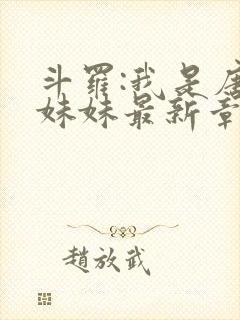 斗羅:我是唐
妹妹最新章
趙放武